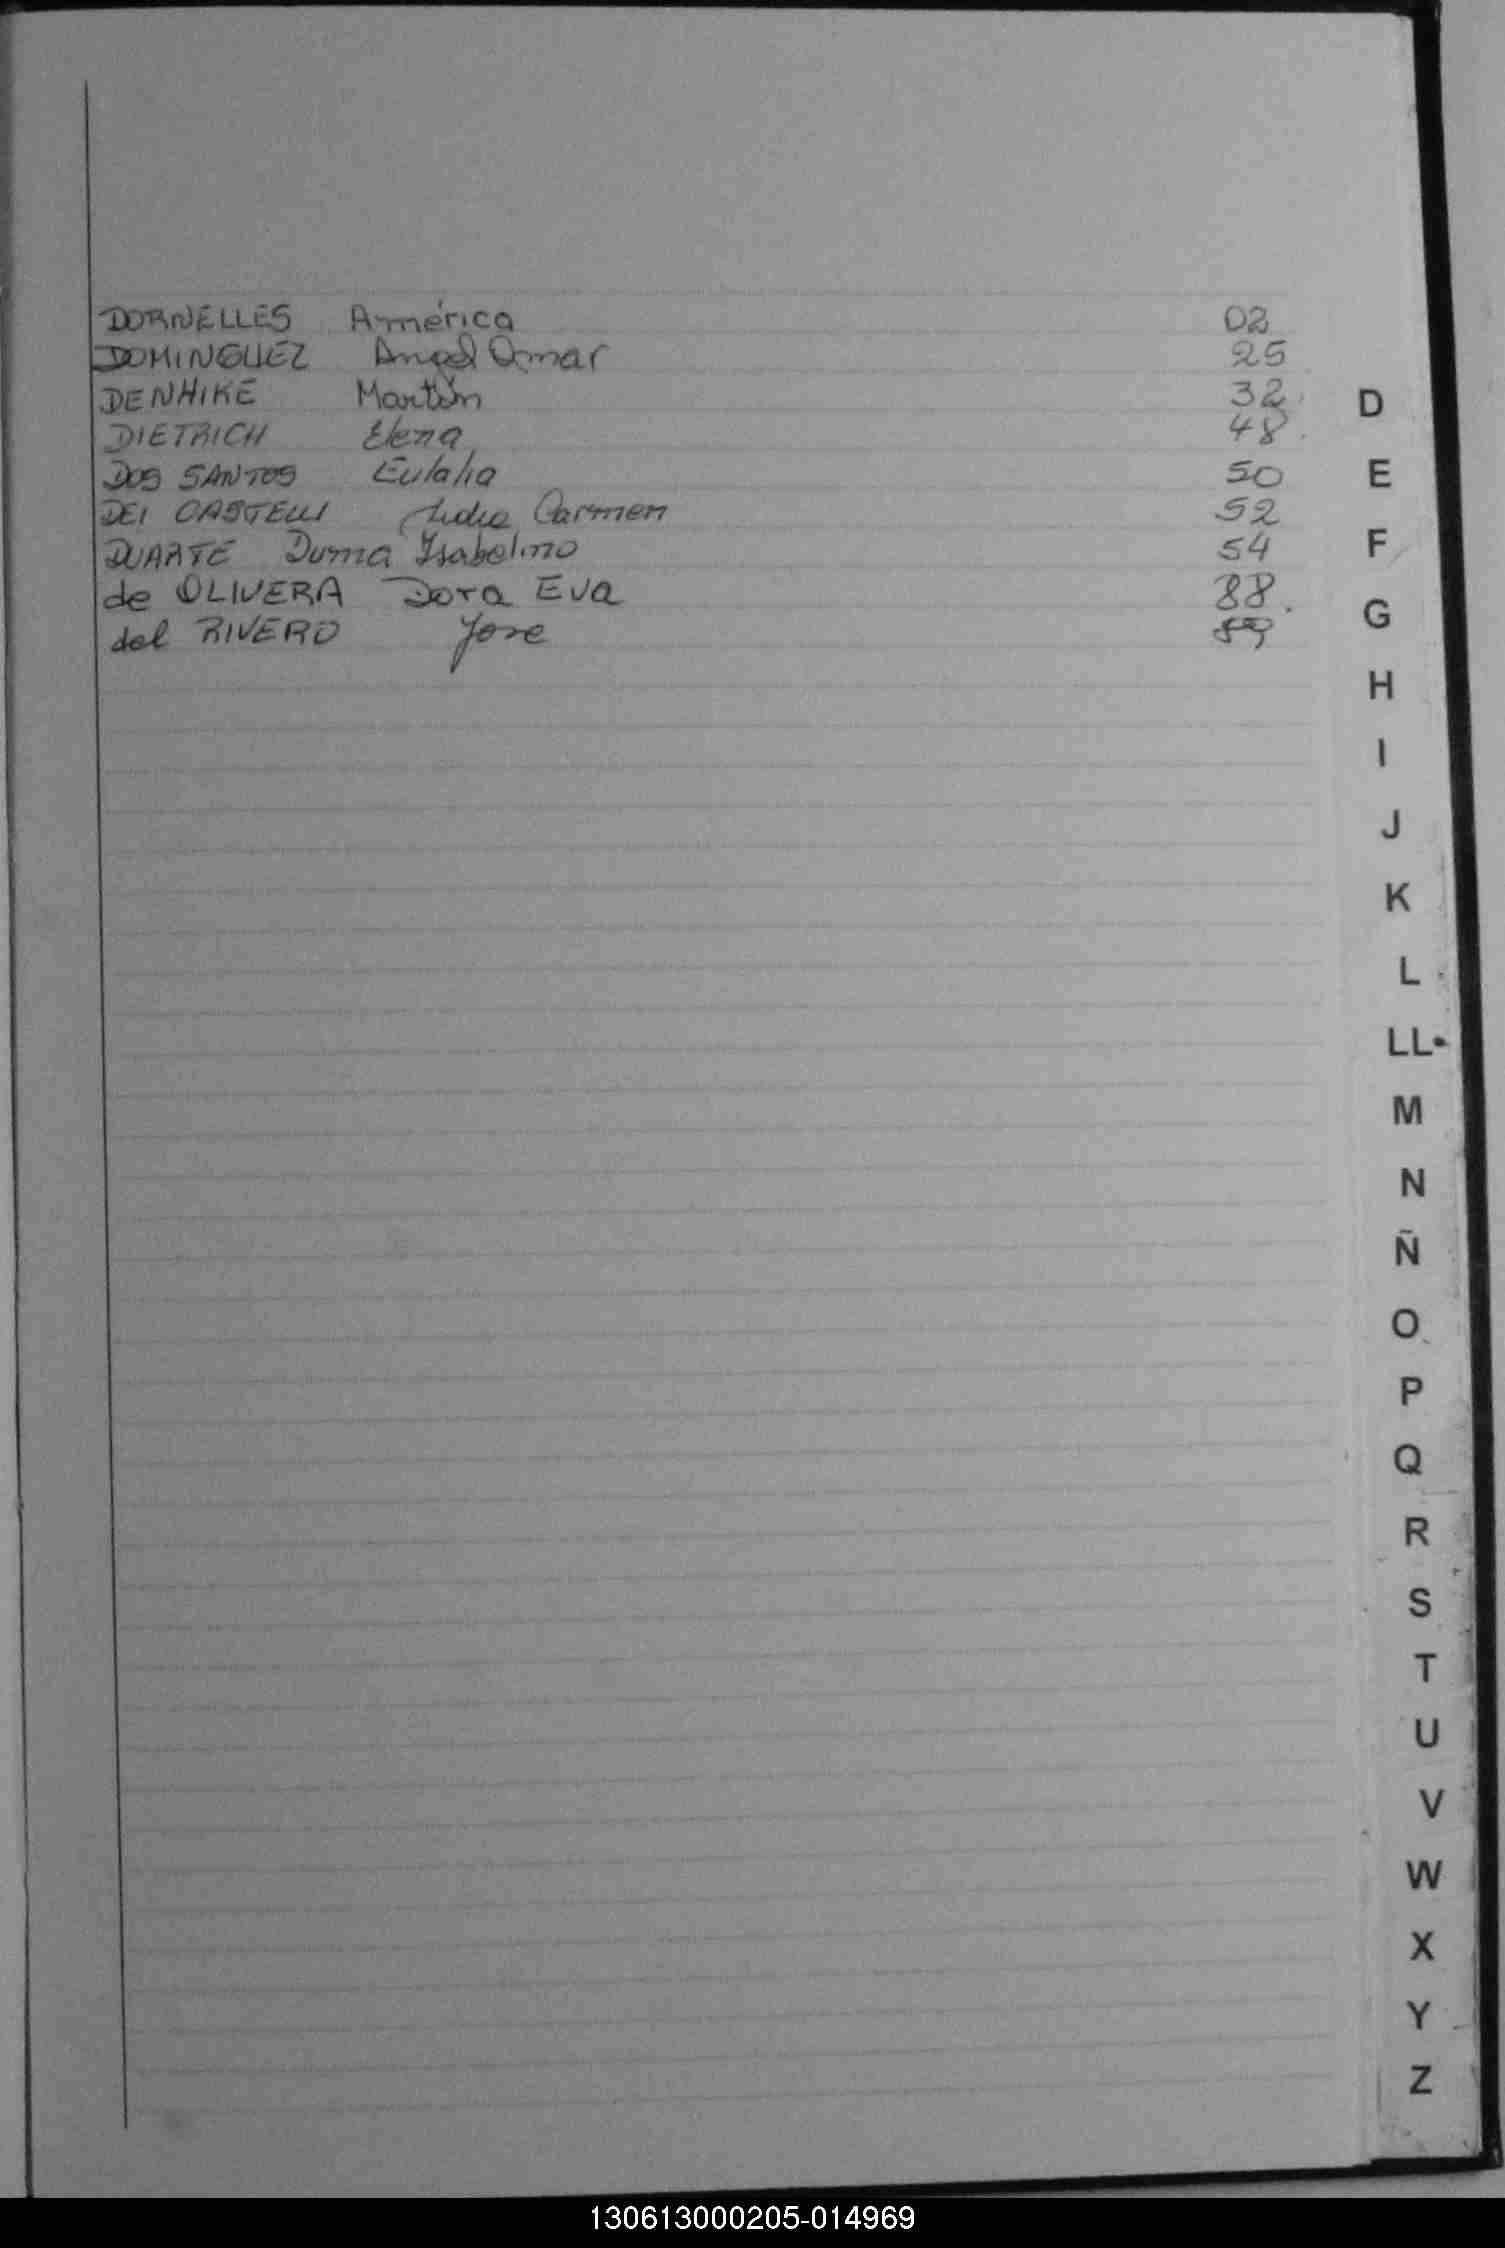 DORNELLES América 02
DOMINGUEZ Angel Omar 25
DENHIKE Martín 32
DIETRICH Elena 48
DOS SANTOS Eulalia 50
DEI CASTELLI Lidia Carmen 52
DUARTE Duma Isabelino 54
de OLIVERA Dora Eva 88
del RIVERO Jose 89
D
E
F
G
H
I
J
K
L
LL
M
N
Ñ
O
P
Q
R
S
T
U
V
W
X
Y
Z
130613000205-014969